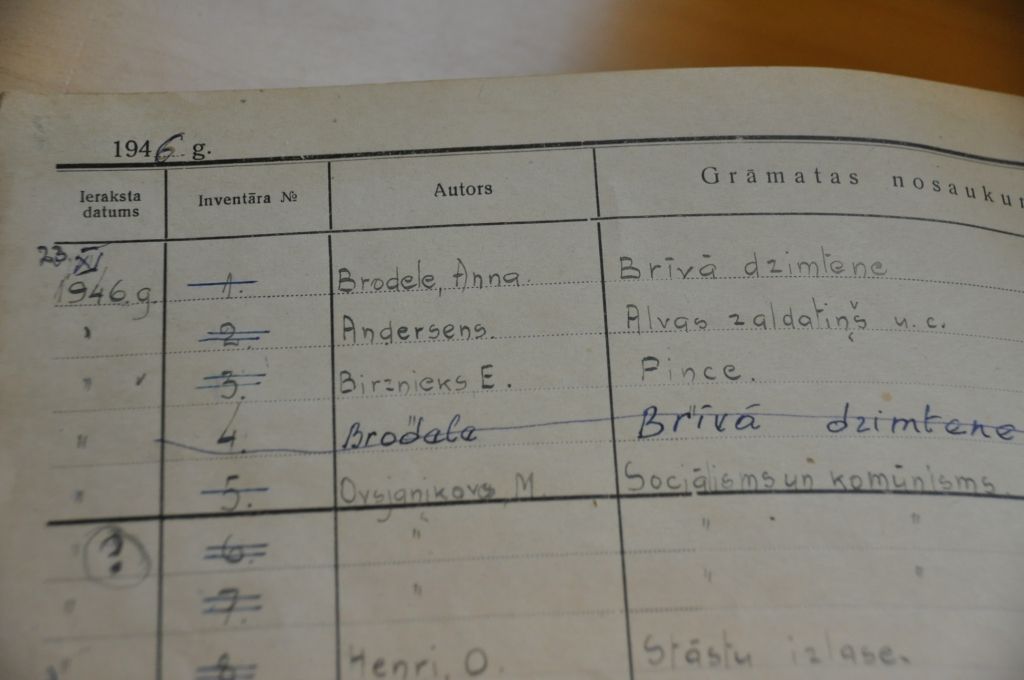 1946 g.
Ieraksta datums Inventāra № Autors Grāmatas nosaukum
23. XI
1946.g. 1. Brodele, Anna. Brīvā dzimtene
" 2. Andersens. Alvas zaldatiņš u.c.
" ✓ 3. Birznieks E. Pince.
" 4. Brodele Brīvā dzimtene
" 5. Ovsjaņikovs, M. Sociālisms un komūnisms.
" ? 6. " " "
" 7. " " "
" 8 Henri, O. Stāstu izlase.